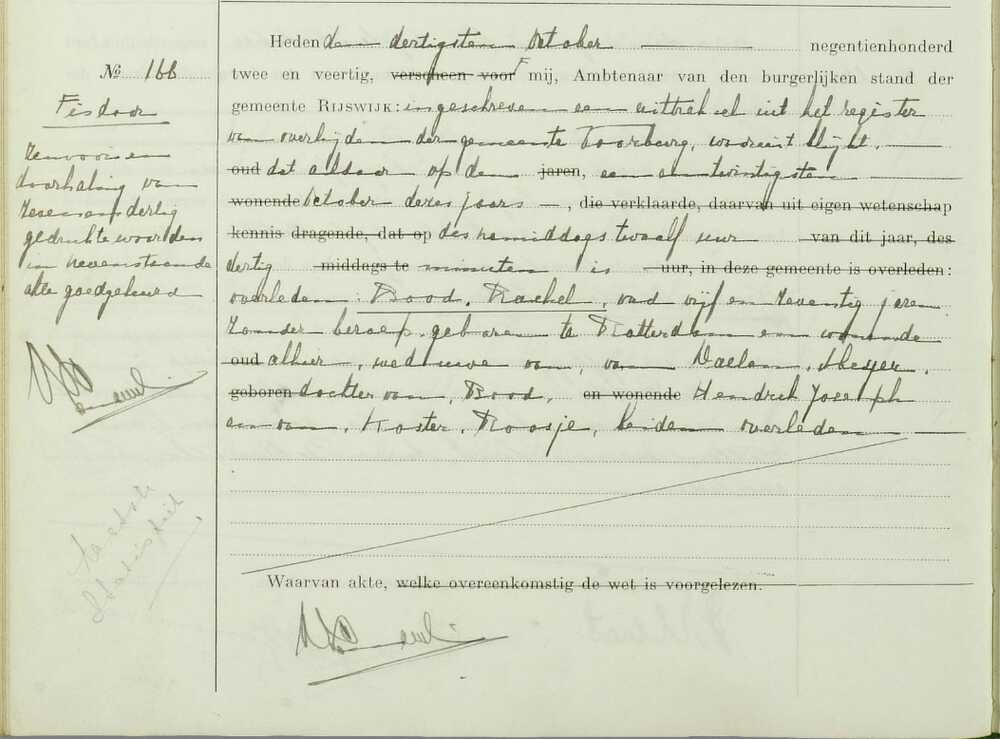 Heden den dertigsten October negentienhonderd
No 166
twee en veertig, verscheen voor F mij, Ambtenaar van den burgerlijken stand der
gemeente RIJSWIJK: ingeschreven een uittreksel uit het register
van overlijden der gemeente Voorburg, waaruit blijkt,
oud dat aldaar op den jaren, een en twintigsten
wonende October dezes jaars —, die verklaarde, daarvan uit eigen wetenschap
kennis dragende, dat op des namiddags twaalf uur van dit jaar, des
dertig middags te minuten is uur, in deze gemeente is overleden:
overleden: Rood, Rachel, oud vijf en zeventig jaren
zonder beroep geboren te Rotterdam en wonende
oud alhier, weduwe van, van Daelen, Meyer,
geboren dochter van, Rood, en wonende Hendrik Joseph
en van, Koster, Roosje, beiden overleden
Waarvan akte, welke overeenkomstig de wet is voorgelezen.
F is door
Renvooi en
doorhaling van
zeven en dertig
gedrukte woorden
in nevenstaande
akte goedgekeurd